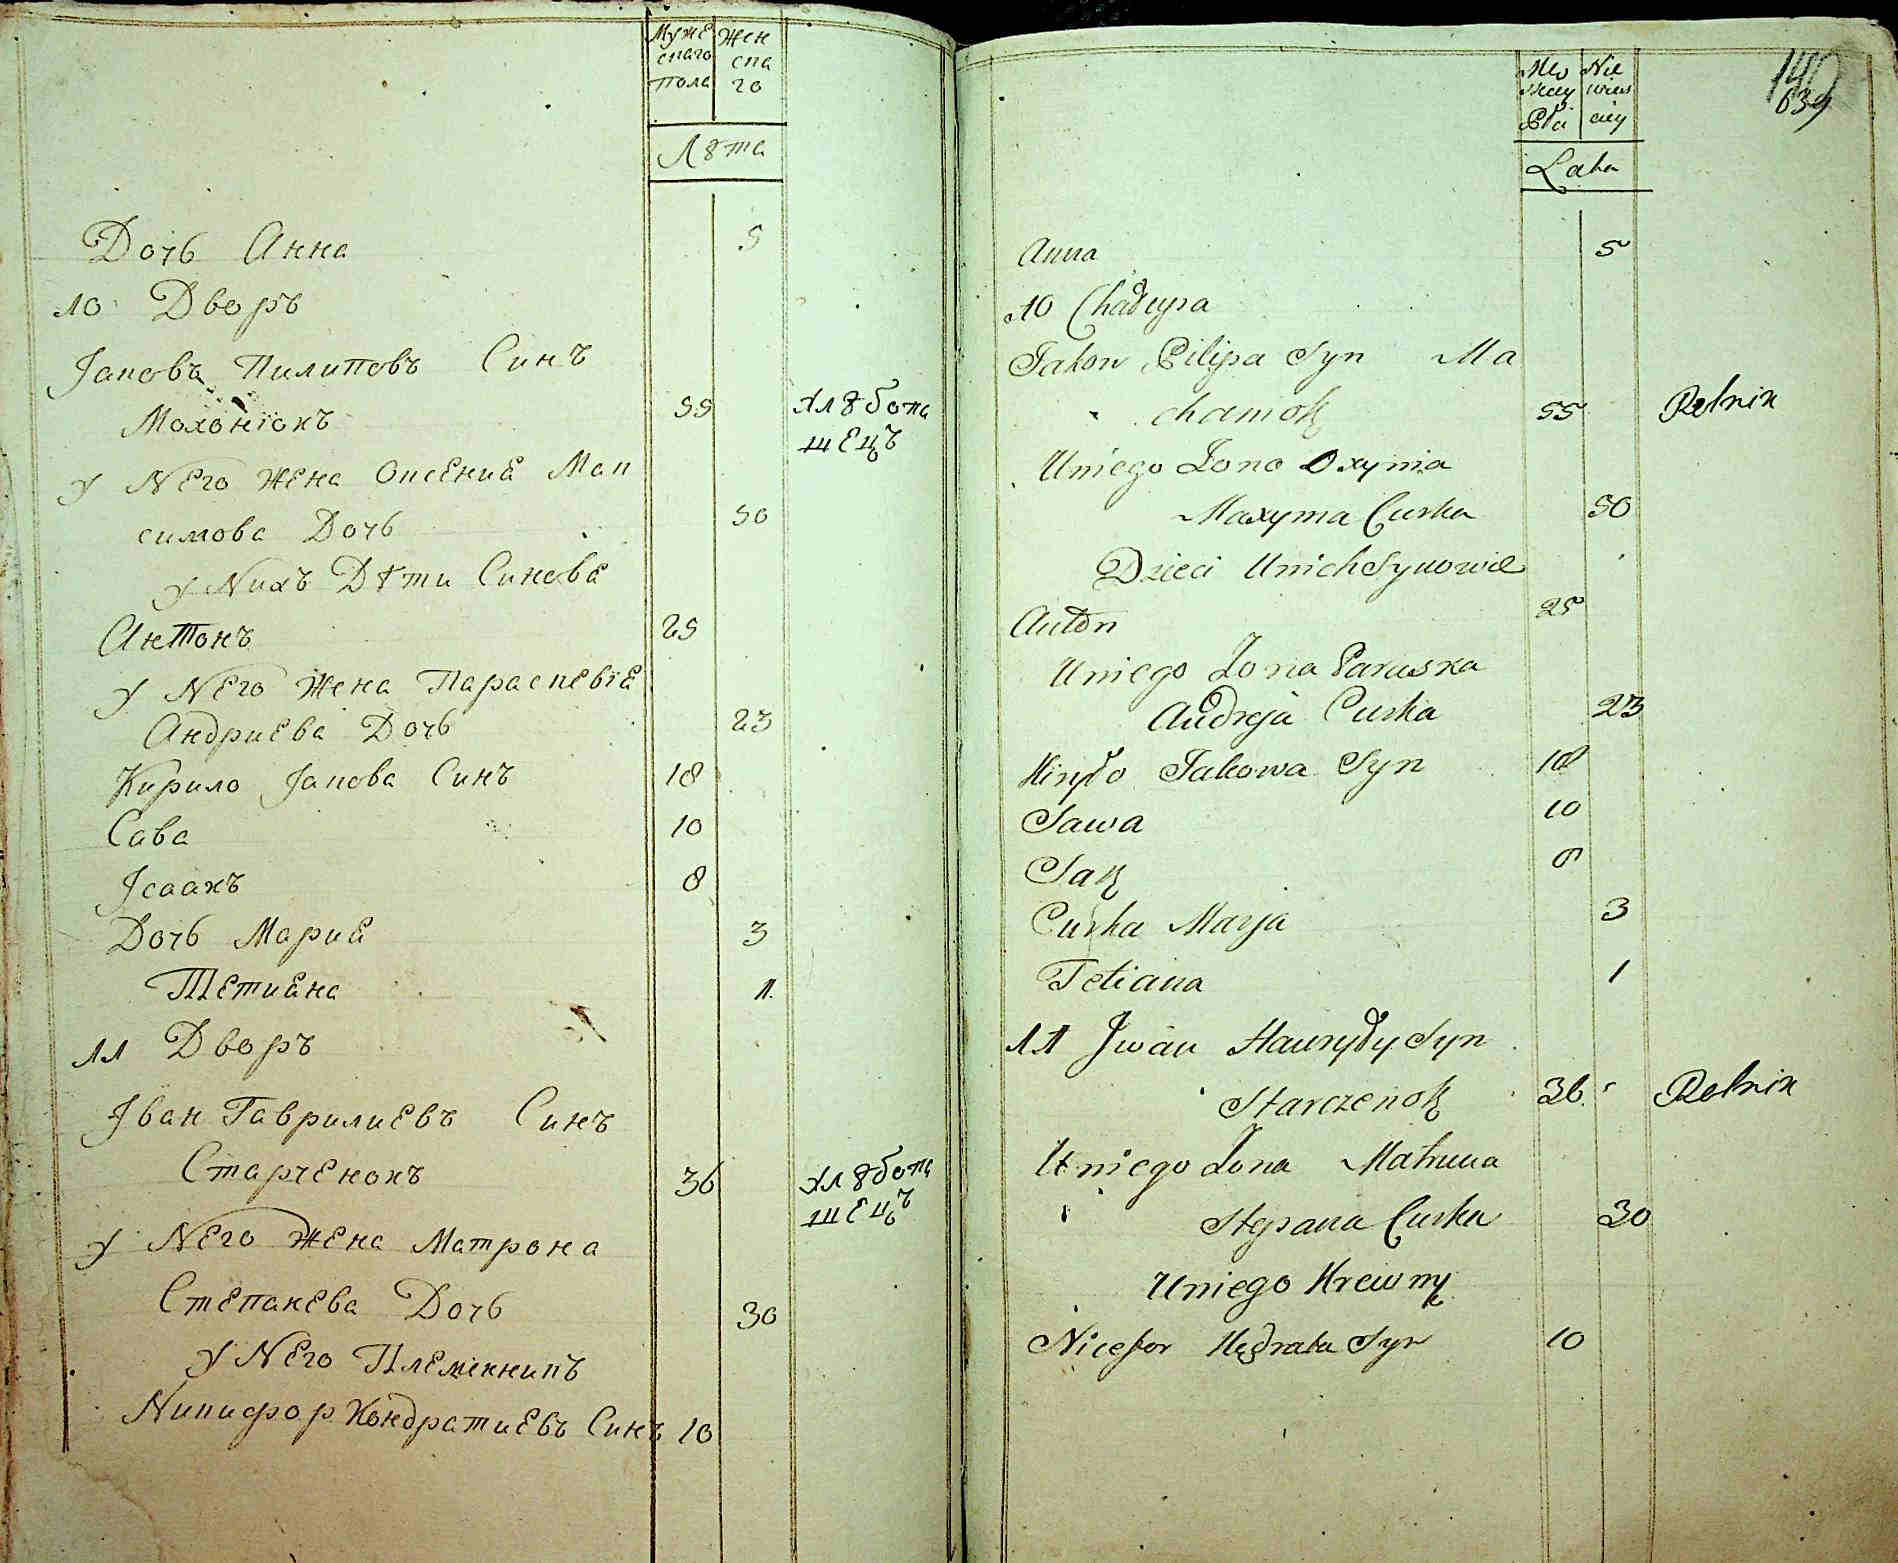 Муже Жен
скаго ска
пола го
Лѣта
Дочь Анна 5
10 Дворъ
Іаковъ Пилиповъ Синъ
Мохонїокъ 55 хлѣбопа
шецъ
у Него жена Оксениа Мак
симова Дочь 50
у Нихъ Дѣти Синова
Антонъ 25
у Него жена Параскевїа
Андриева Дочь 23
Кирило Іакова Синъ 18
Сава 10
Ісаахъ 8
Дочь Мариа 3
Тетиана 1.
11 Дворъ
Іван Гаврилиевъ Синъ
Старченокъ 36 хлѣбопа
шецъ
у Него жена Матрона
Степанева Дочь 30
у Него Племенникъ
Никифор Кондратиевъ Синъ 10
639
Męz Nie
skey wies
Płci ciey
Lata
Anna 5
10 Chałupa
Jakow Pilipa Syn Ma
chamok 55 Rolnik
Uniego Zona Oxynia
Maxyma Curka 50
Dzieci Unich Synowie
Anton 25
Uniego Zona Paraska
Andreja Curka 23
Kiryło Jakowa Syn 18
Sawa 10
Sak 8
Curka Marja 3
Tetiana 1
11 Jwan Hawryły Syn
Starczenok 36 Rolnik
Uniego Zona Matruna
Stepana Curka 30
Uniego Krewny
Nicefor Kądrata Syn 10